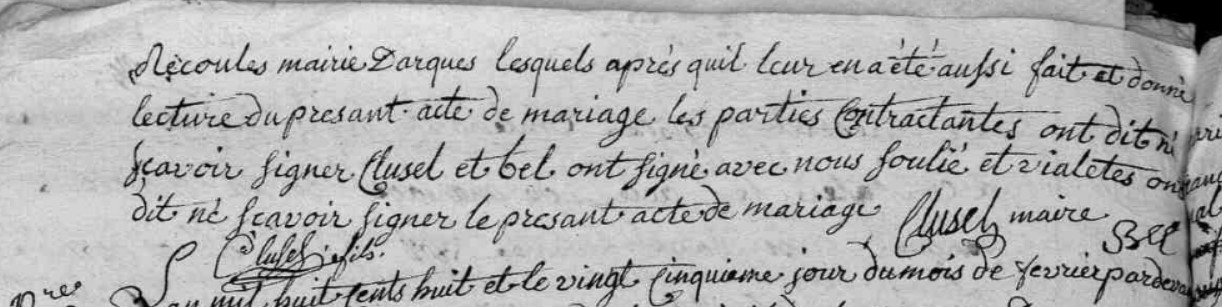 Recoules mairie Darques lesquels après quil leur en a été aussi fait et donné
lecture du presant acte de mariage les parties Contractantes ont dit né
sçavoir signer Clusel et bel ont signé avec nous soulié et vialetes ont
dit né sçavoir signer le presant acte de mariage Clusel maire Bel
Clusel fils.
L'an mil huit cents huit et le vingt Cinquieme jour du mois de fevrier pardevant